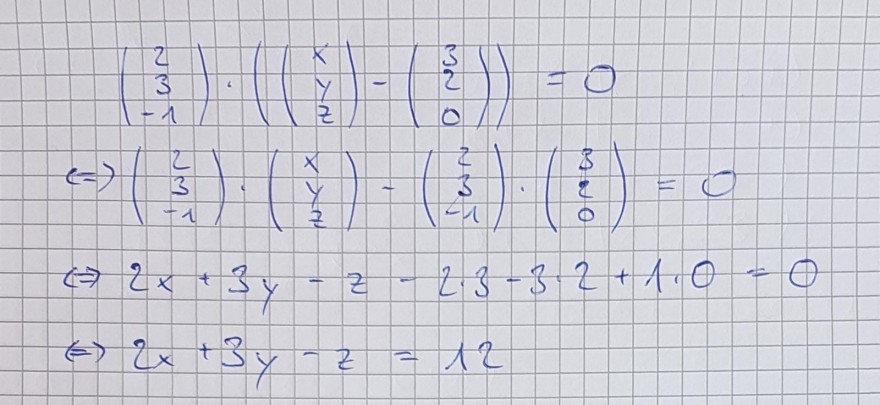 (2 3 -1) · ((x y z) - (3 2 0)) = 0
<=> (2 3 -1) · (x y z) - (2 3 -1) · (3 2 0) = 0
<=> 2x + 3y - z - 2·3 - 3·2 + 1·0 = 0
<=> 2x + 3y - z = 12